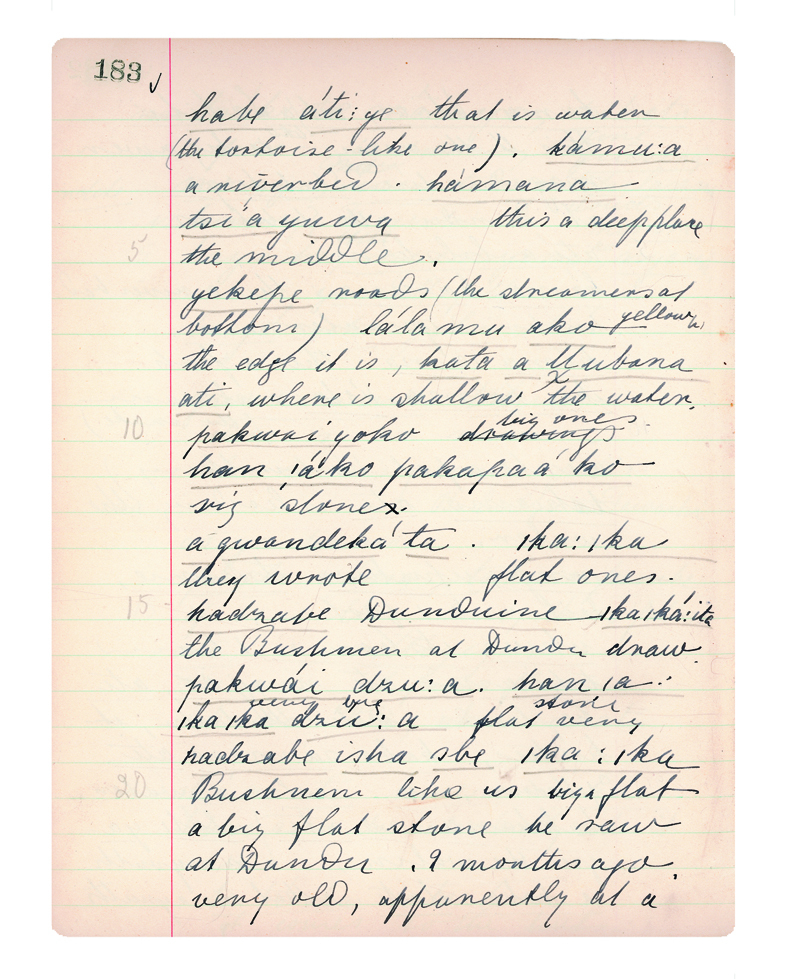 183 ✓
habe áti:ye that is water
(the tortoise-like one). kámu:a
a riverbed. hámana
tsí'a yuwa this a deep place
5 the middle.
yekepe roads (the streamers at
bottom) lála mu ako yellow,
the edge it is, kata a Mubana
ati, where is shallow the water.
big ones.
10 pakwaí yoko drawings
han ıáko pakapaá ko
big stones.
á gwandeká'ta. ıka:ıka
they wrote flat ones.
15 hadzabe Dunduine ıkaıká:ita
the Bushmen at Dundu draw
pakwái dzu:a. han ıa:
very big stone
ıkaıka dzú:a flat very
hadzabe isha sbe ıka:ıka
20 Bushmen like us big flat
a big flat stone he saw
at Dundu. 9 months ago.
very old, apparently at a